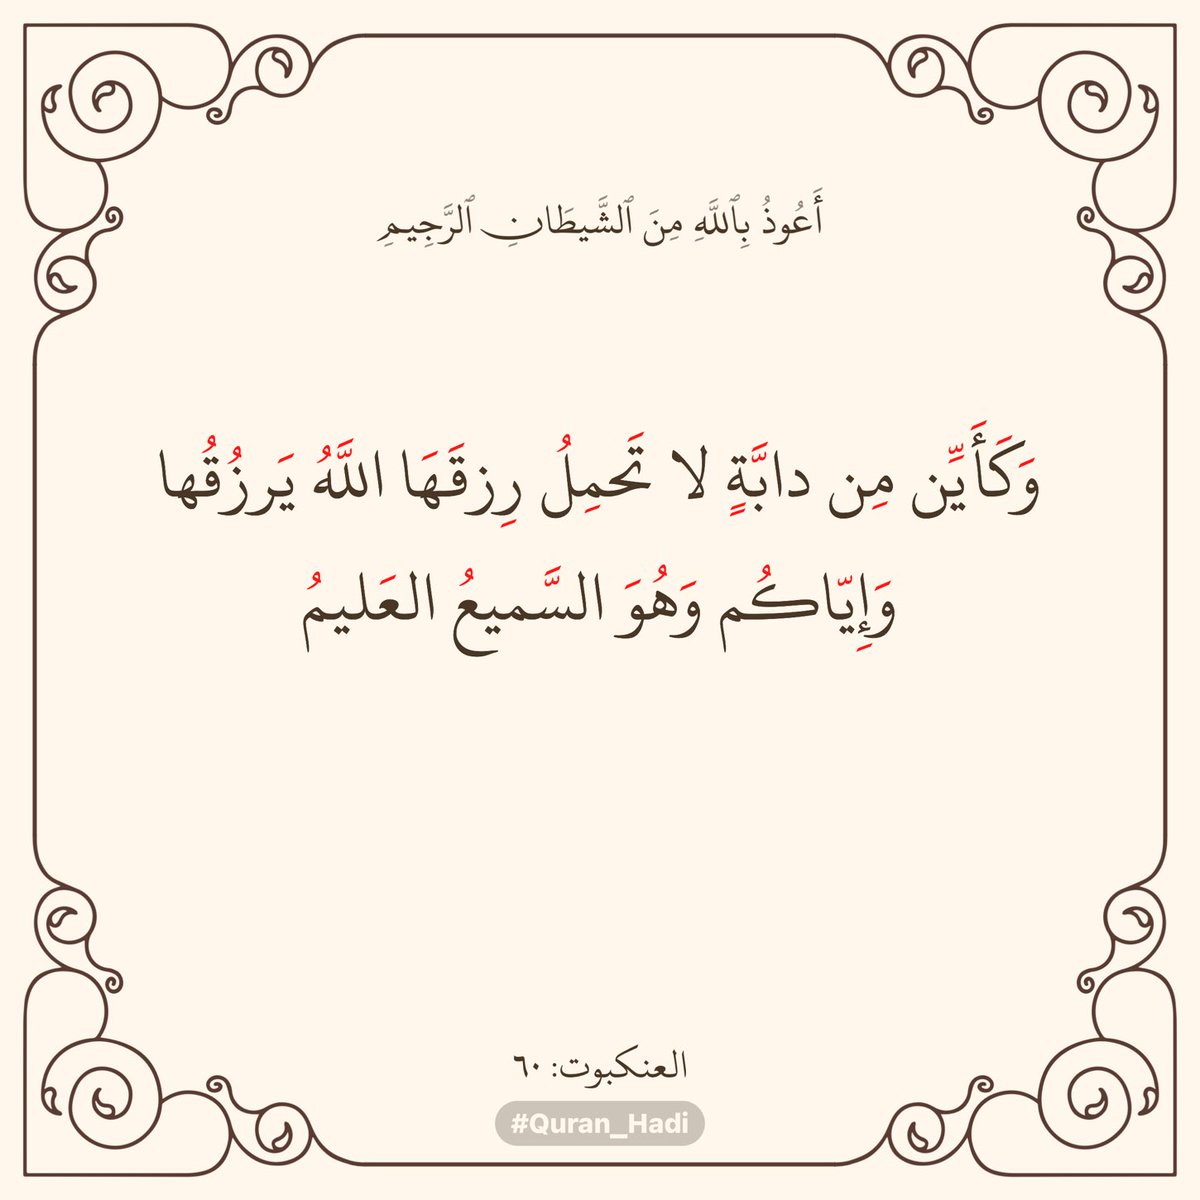 أَعُوذُ بِٱللَّهِ مِنَ ٱلشَّيطَانِ ٱلرَّجِيمِ
وَكَأَيِّن مِن دابَّةٍ لا تَحمِلُ رِزقَهَا اللَّهُ يَرزُقُها
وَإِيّاكُم وَهُوَ السَّميعُ العَليمُ
العنكبوت: ٦٠
#Quran_Hadi